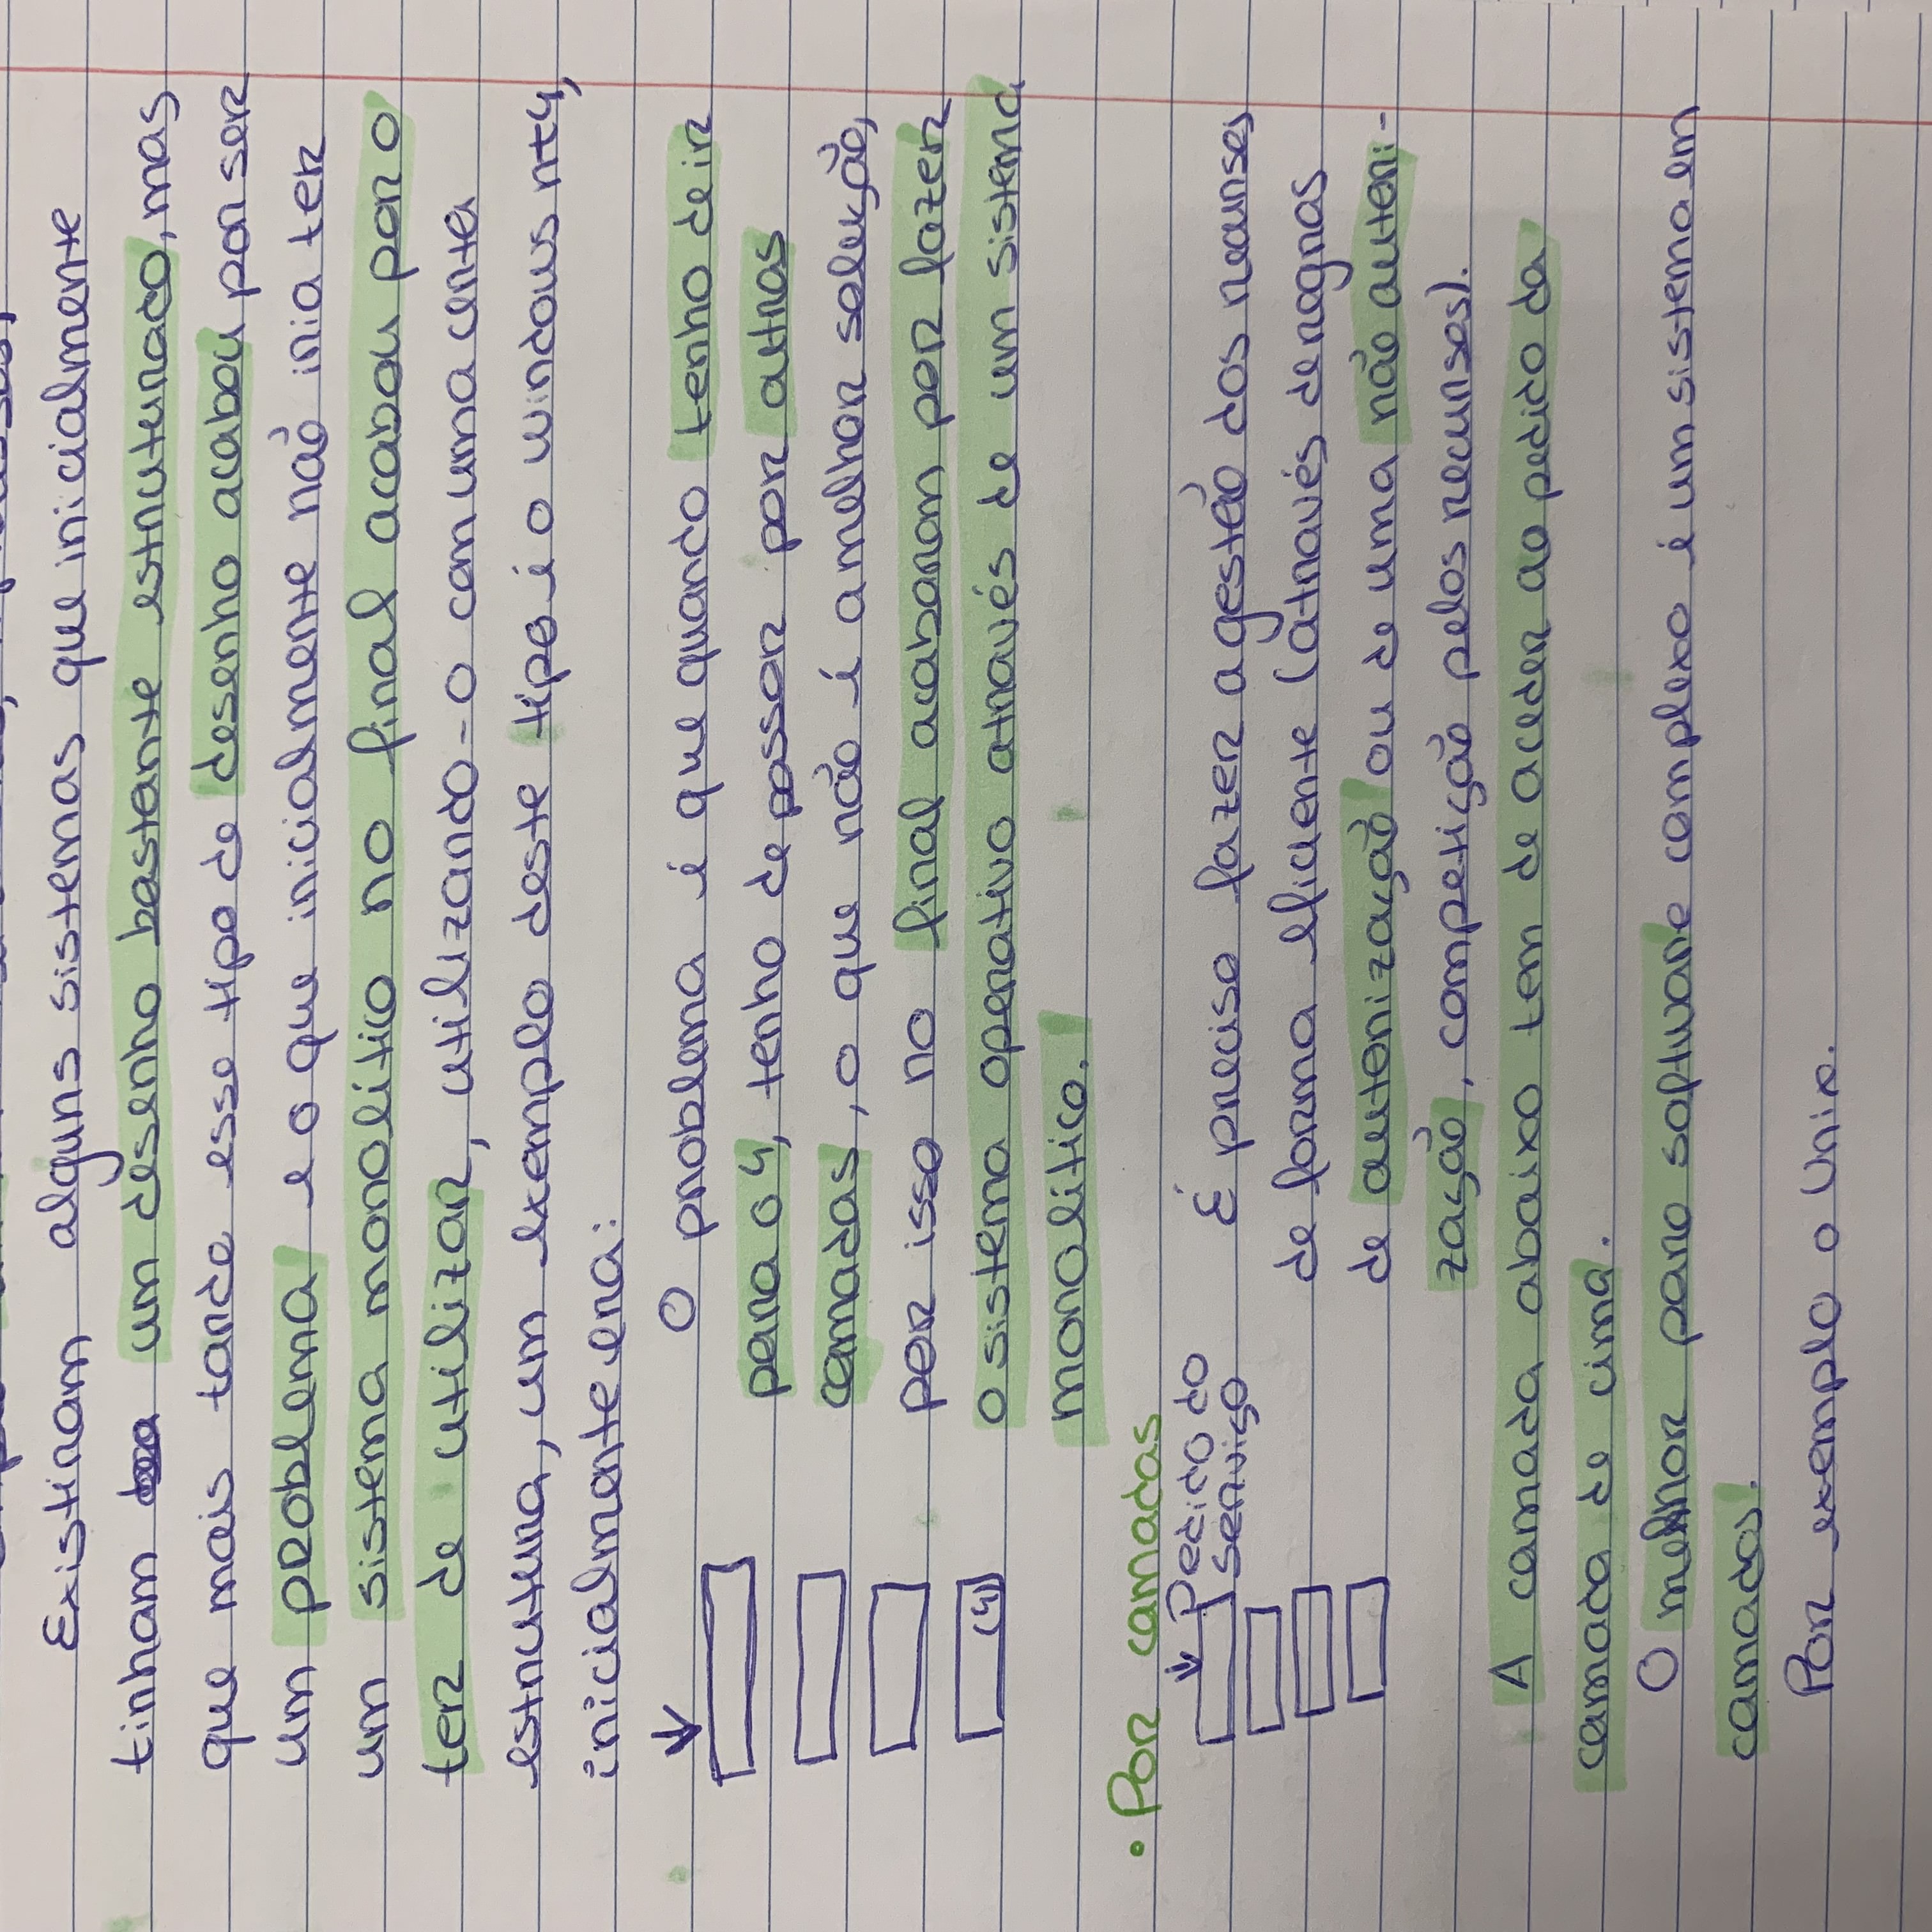 Existiram alguns sistemas que inicialmente
tinham um desenho bastante estruturado, mas
que mais tarde esse tipo de desenho acabou por ser
um problema e o que inicialmente não iria ter
um sistema monolítico no final acabou por o
ter de utilizar, utilizando-o com uma certa
estrutura, um exemplo deste tipo é o windows nt4,
inicialmente era:
O problema é que quando tenho de ir
para o 4, tenho de passar por outras
camadas, o que não é a melhor solução,
por isso no final acabaram por fazer
(4)
o sistema operativo através de um sistema
monolítico.
• Por camadas
Pedido do
serviço
É preciso fazer a gestão dos recursos
de forma eficiente (através de regras
de autorização ou de uma não autori-
zação, competição pelos recursos).
A camada abaixo tem de aceder ao pedido da
camada de cima.
O melhor para software complexo é um sistema em
camadas.
Por exemplo o Unix.